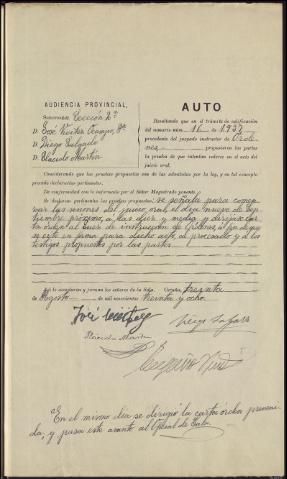 AUDIENCIA PROVINCIAL,
Sección 2ª
D. José
D. Diego Salgado
D. Plácido Martín
AUTO
Resultando que en el trámite de calificación
del sumario núm. 16 de 1937
procedente del juzgado instructor de Orde-
nes propusieron las partes
la prueba de que intentan valerse en el acto del
juicio oral.
Considerando que las pruebas propuestas son de las admitidas por la ley, y en tal concepto
procede declararlas pertinentes.
De conformidad con lo informado por el Señor Magistrado ponente:
Se declaran pertinentes las pruebas propuestas; se señala para comen-
zar las sesiones del juicio oral el día nueve de Sep-
tiembre próximo a las diez y media y diríjase car-
ta orden al Juez de instrucción de Ordenes, a fin de que
cite en forma para dicho acto al procesado y a los
testigos propuestos por las partes.
Así lo acordaron y firman los señores de la Sala. Coruña, treinta
de Agosto de mil novecientos treinta y ocho.
Plácido Martín
Diego Salgado
En el mismo día se dirigió la carta órden preveni-
da, y pasa este asunto al Oficial de Sala.